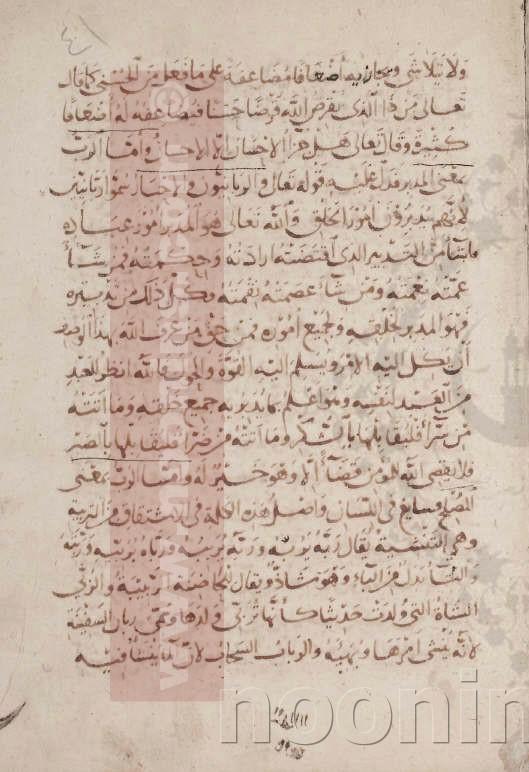 ولا يتلاشى ويجازيه أضعافا مضاعفة على ما فعل من الحسنى كما قال
تعالى من ذا الذي يقرض الله قرضا حسنا فيضاعفه له أضعافا
كثيرة وقال تعالى هل جزاء الإحسان إلا الإحسان وأما الرب
بمعنى المدبر فدل عليه قوله تعالى والربانيون والأحبار سموا ربانيين
لأنهم يدبرون أمور الخلق والله تعالى هو المدبر أمور عباده
ما يشاء من التدبير الذي اقتضته إرادته وحكمته فمن شاء
عمته نعمته ومن شاء عصمته نقمته وكل ذلك من تدبيره
فهو المدبر لخلقه ولجميع أموره فمن حق من عرف الله بهذا الوصف
أن يكل إليه الأمر ويسلم إليه القوة والحول فالله أنظر للعبد
من العبد لنفسه وهو أعلم بما يدبر به جميع خلقه وما أتته
من سرّاء فليقابلها بالشكر وما أتته من ضرّاء فليقابلها بالصبر
فلا يقضي الله للمؤمن قضاء إلا وهو خير له وأما الرب بمعنى
المصلح فسايغ في اللسان وأصل هذه الكلمة في الاشتقاق من التربية
وهي التنشية يقال ربه يربه وربّه يربيه ورباه يربيه وربته
والتاء بدل من الباء وهو شاذ ويقال للحاضنة الربيبة والربى
الشاة التي ولدت حديثا كأنها تربى ولدها وسمي ربان السفينة
لأنه ينشي أمرها ويهيئه والرباب السحاب لأن الماء ينشأ فيه
noonin